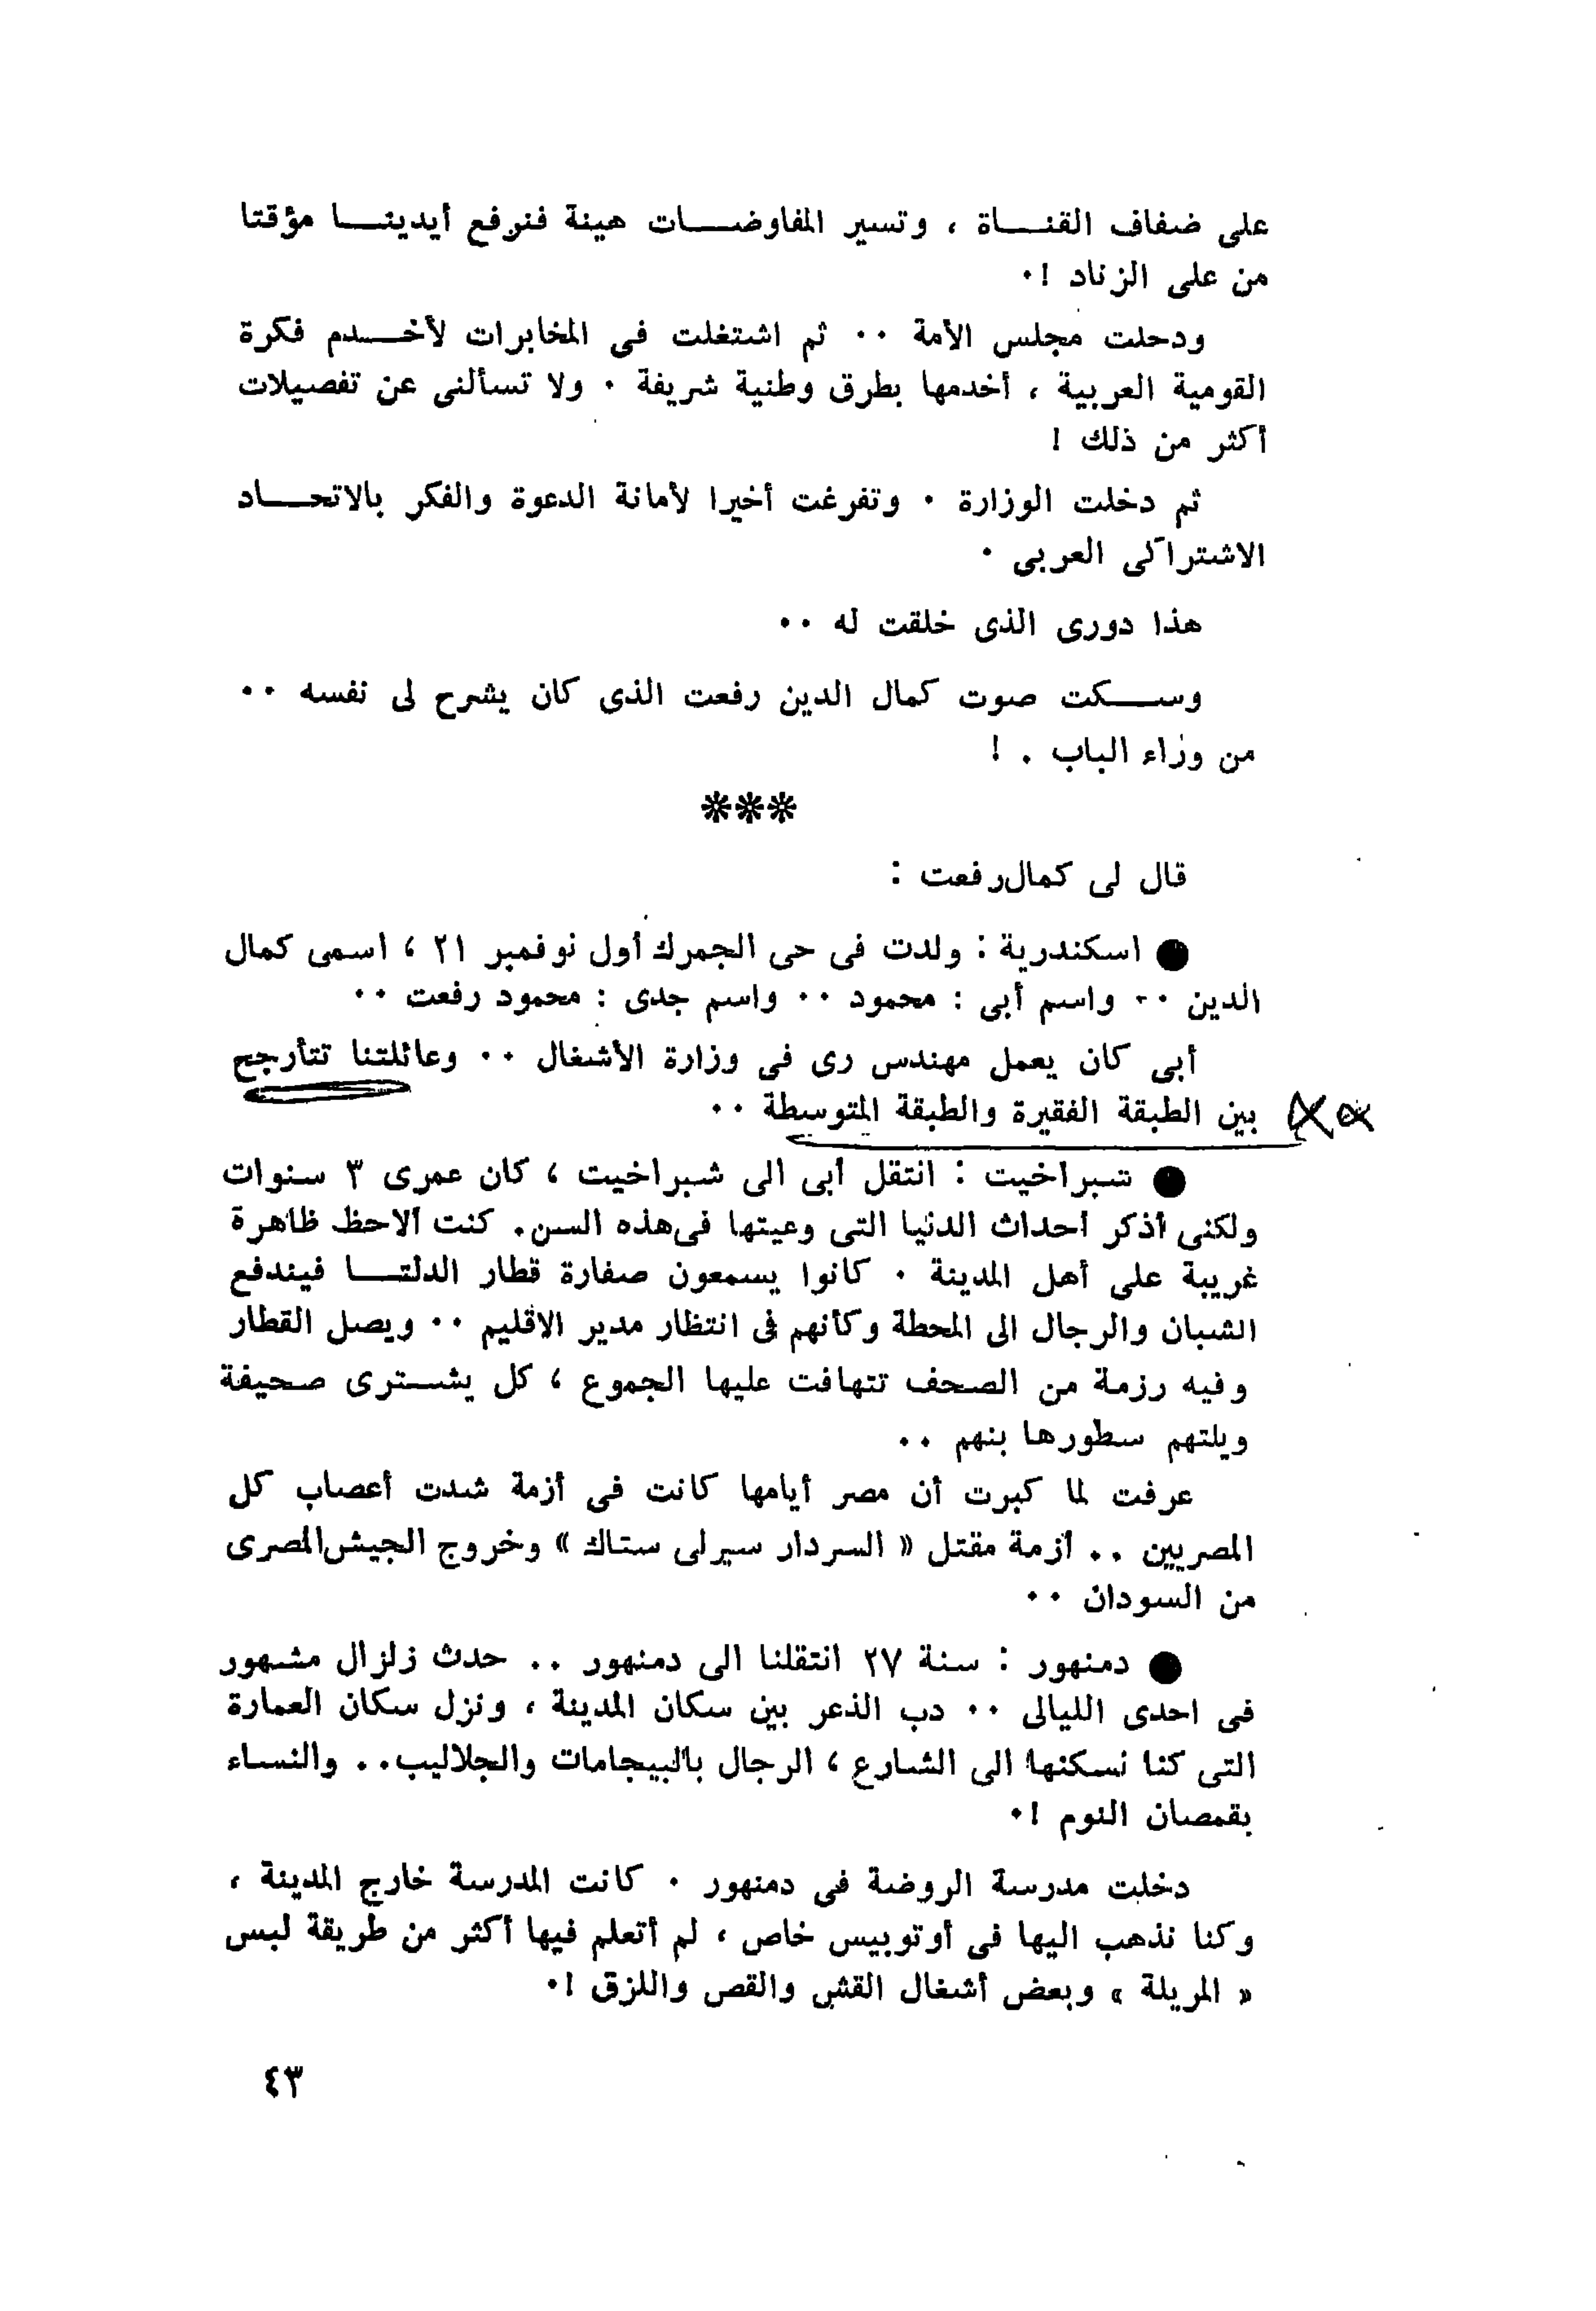 على ضفاف القنـــاة ، وتسير المفاوضـــات هينة فنرفع أيدينـــا مؤقتا
من على الزناد !٠
ودخلت مجلس الأمة ٠٠ ثم اشتغلت فى المخابرات لأخـــدم فكرة
القومية العربية ، أخدمها بطرق وطنية شريفة ٠ ولا تسألنى عن تفصيلات
أكثر من ذلك !
ثم دخلت الوزارة ٠ وتفرغت أخيرا لأمانة الدعوة والفكر بالاتحـــاد
الاشتراكى العربى ٠
هذا دورى الذى خلقت له ٠٠
وســـكت صوت كمال الدين رفعت الذى كان يشرح لى نفسه ٠٠
من وراء الباب . !
***
قال لى كمال رفعت :
● اسكندرية : ولدت فى حى الجمرك أول نوفمبر ٢١ ، اسمى كمال
الدين ٠٠ واسم أبى : محمود ٠٠ واسم جدى : محمود رفعت ٠٠
أبى كان يعمل مهندس رى فى وزارة الأشغال ٠٠ وعائلتنا تتأرجح
بين الطبقة الفقيرة والطبقة المتوسطة ٠٠
● شبراخيت : انتقل أبى الى شبراخيت ، كان عمرى ٣ سنوات
ولكنى أذكر أحداث الدنيا التى وعيتها فى هذه السن. كنت ألاحظ ظاهرة
غريبة على أهل المدينة ٠ كانوا يسمعون صفارة قطار الدلتـــا فيندفع
الشبان والرجال الى المحطة وكأنهم فى انتظار مدير الاقليم ٠٠ ويصل القطار
وفيه رزمة من الصحف تتهافت عليها الجموع ، كل يشـــترى صحيفة
ويلتهم سطورها بنهم ٠٠
عرفت لما كبرت أن مصر أيامها كانت فى أزمة شدت أعصاب كل
المصريين .. أزمة مقتل « السردار سيرلى ستاك » وخروج الجيش المصرى
من السودان ٠٠
● دمنهور : سنة ٢٧ انتقلنا الى دمنهور .. حدث زلزال مشهور
فى احدى الليالى ٠٠ دب الذعر بين سكان المدينة ، ونزل سكان العمارة
التى كنا نسكنها الى الشارع ، الرجال بالبيجامات والجلاليب.. والنساء
بقمصان النوم !٠
دخلت مدرسة الروضة فى دمنهور ٠ كانت المدرسة خارج المدينة ،
وكنا نذهب اليها فى أوتوبيس خاص ، لم أتعلم فيها أكثر من طريقة لبس
« المريلة » وبعض أشغال القش والقص واللزق !٠
٤٣